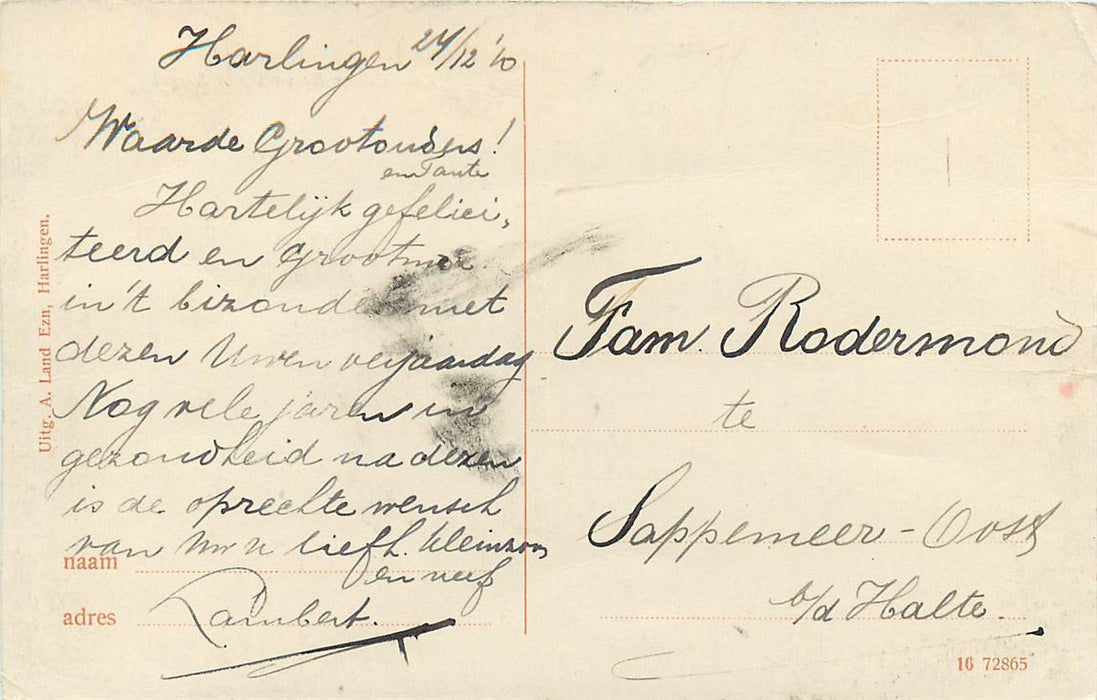 Harlingen 24/12 '10
Waarde Grootouders!
en Tante
Hartelijk gefelici,
teerd en Grootmoe
in 't bizonder met
dezen Uwen verjaardag
Nog vele jaren in
gezondheid na dezen
is de oprechte wensch
van Uw u liefh. kleinzoon
en neef
Lambert.
naam
adres
Uitg. A. Land Ezn, Harlingen.
Fam. Rodermond
te
Sappemeer-Oost
b/d Halte.
16 72865